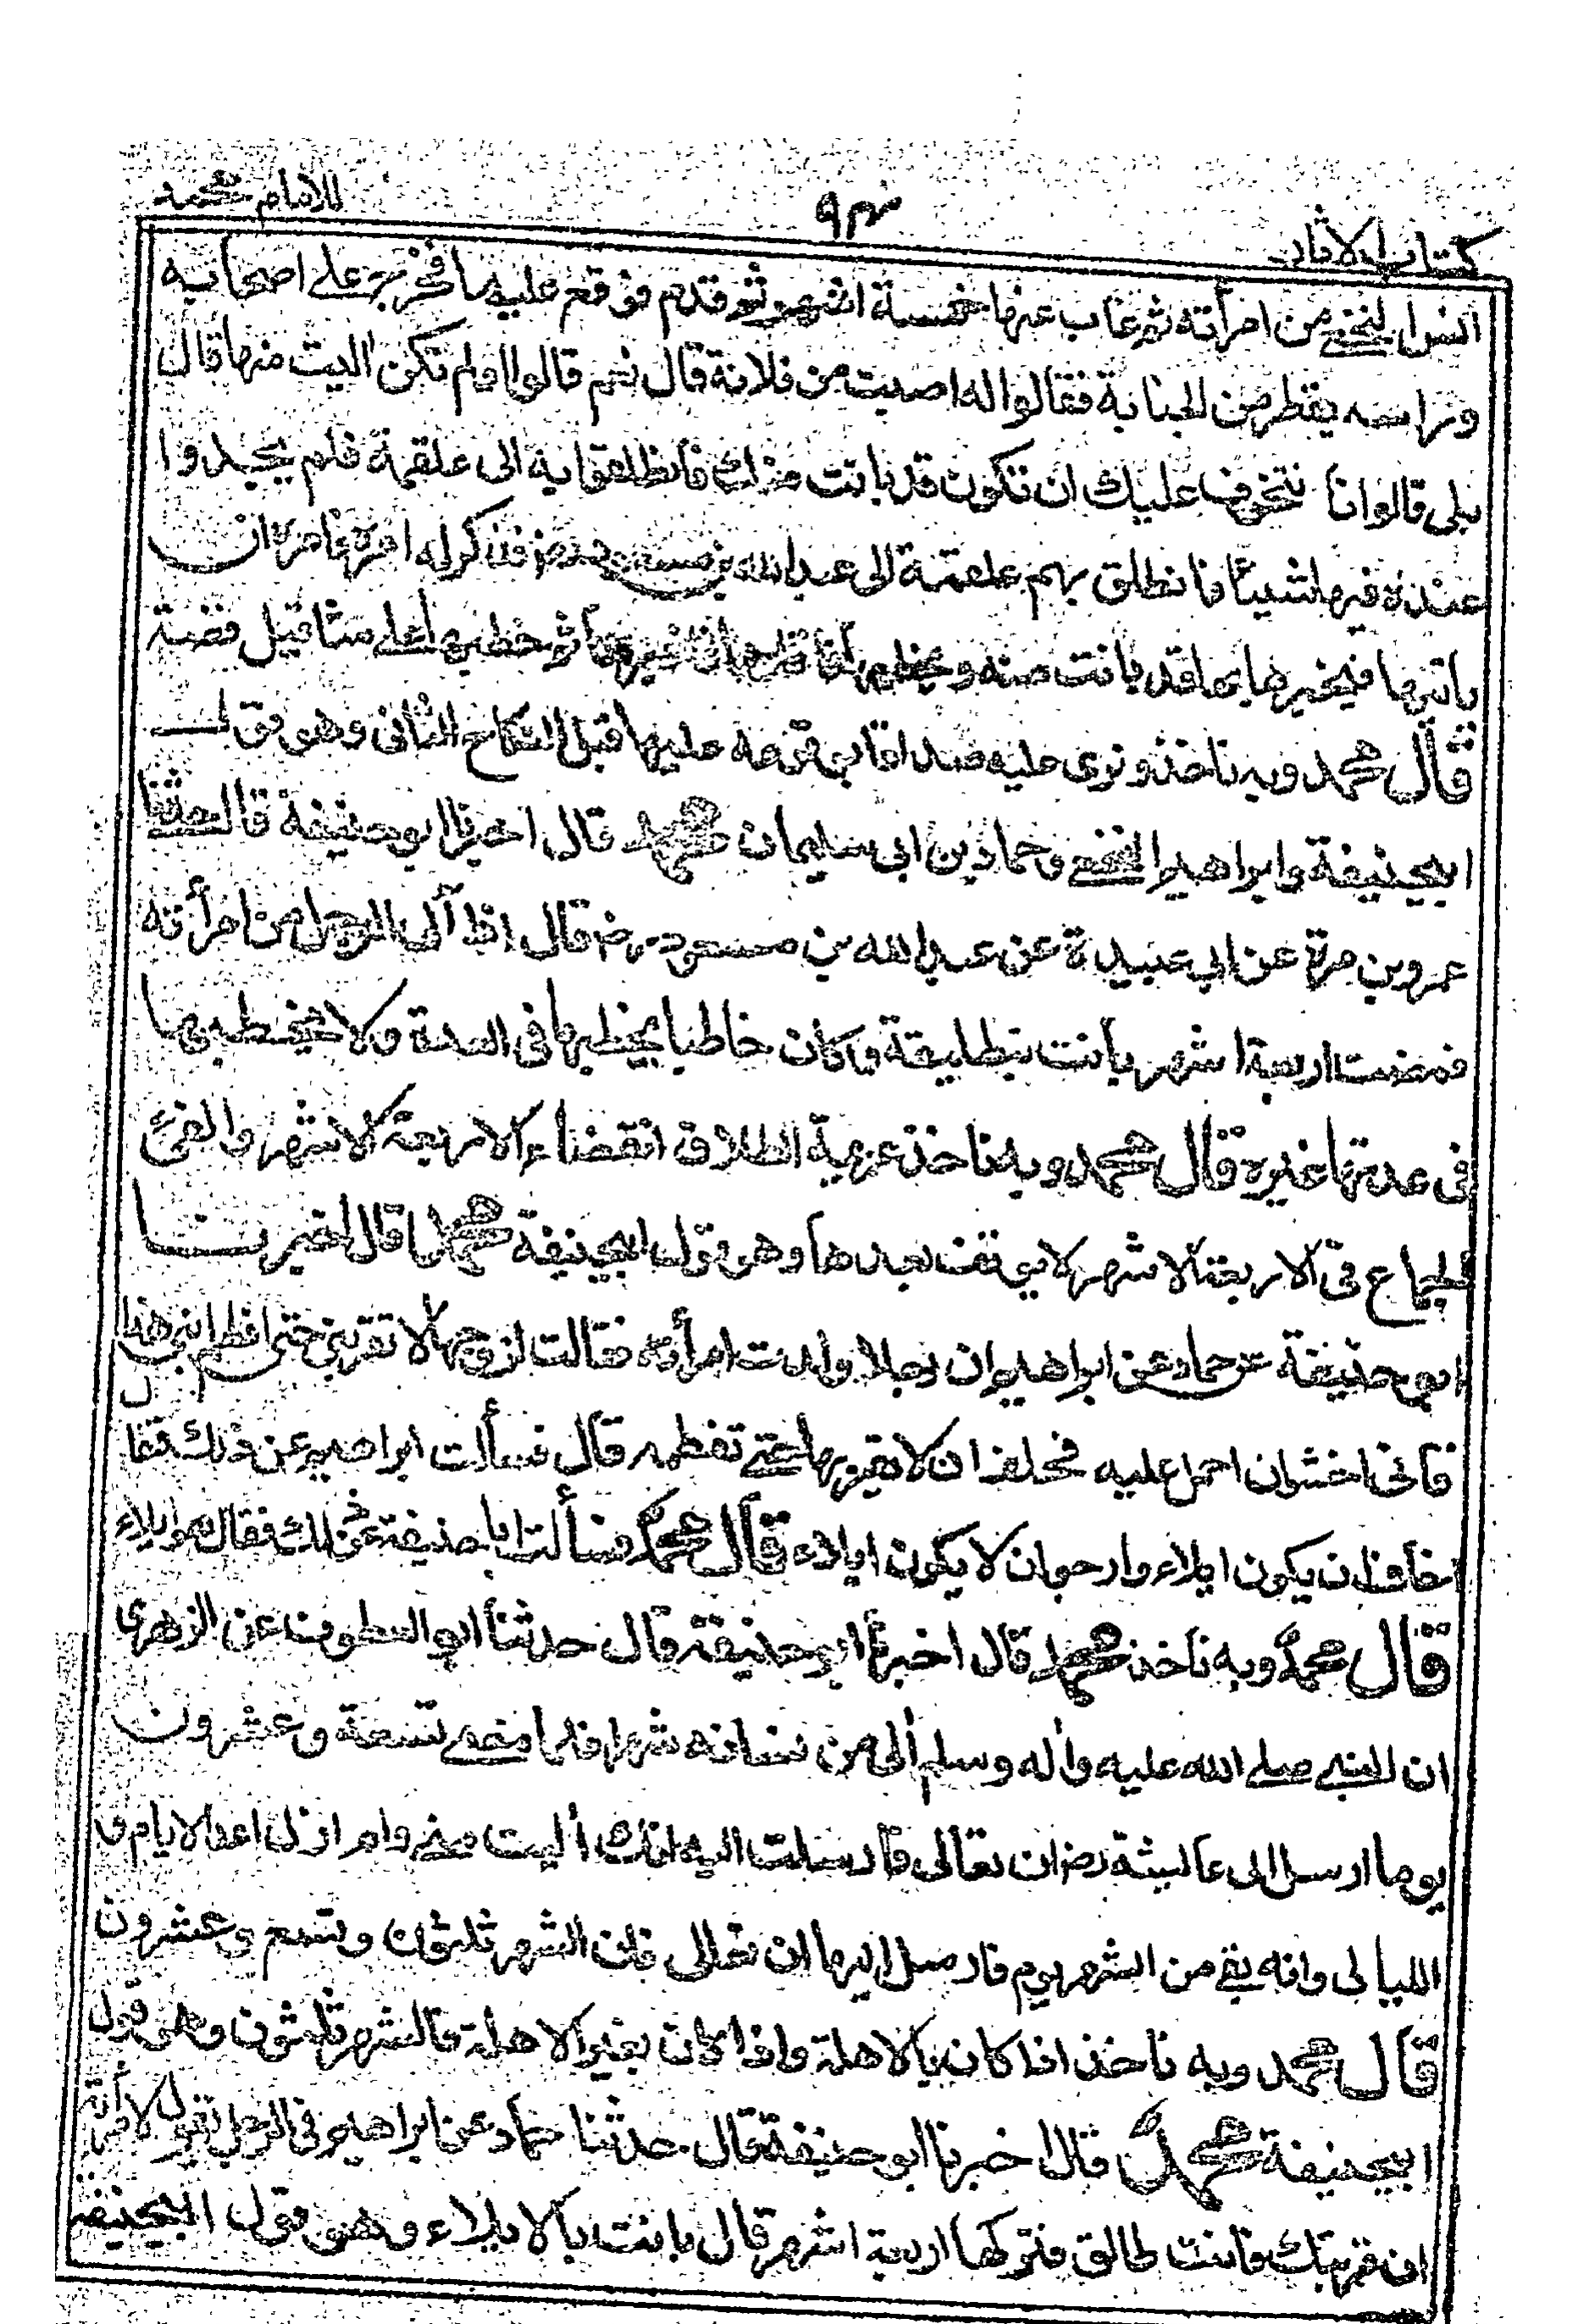 كتاب الاثار
٩٣
للامام محمد
انس النخعى من امرأته ثم غاب عنها خمسة اشهر ثم قدم فوقع عليها فخرج على اصحابه
وراسه يقطر من الجنابة فقالوا له اصبت من فلانة قال نعم قالوا اولم تكن اليت منها قال
بلى قالوا انا نتخوف عليك ان تكون قد بانت منك فانطلقوا به الى علقمة فلم يجيدوا
عنده فيها شيئا فانطلق بهم علقمة الى عبد الله بن مسعود رض فذكر له امره فامره ان
ياتيها فيخبرها بما قد بانت منه ويخطبها فاتاها فاخبرها ثم خطبها على مثاقيل فضة
قال محمد وبه ناخذ ونرى عليه صداقا بوقوعه عليها قبل النكاح الثانى وهو قول
ابيحنيفة وابراهيم النخعى وحماد بن ابى سليمان محمد قال اخبرنا ابو حنيفة قال حدثنا
عمرو بن مرة عن ابى عبيدة عن عبد الله بن مسعود رض قال اذا ألى الرجل من امرأته
فمضت اربعة اشهر بانت بتطليقة وكان خاطبا يخطبها فى العدة ولا يخطبها
فى عدتها غيره قال محمد وبه ناخذ عزيمة الطلاق انقضاء الاربعة الاشهر والفئ
الجماع فى الاربعة الاشهر لا يوقف بعدها وهو قول ابيحنيفة محمد قال اخبرنا
ابو حنيفة عن حماد عن ابراهيم ان رجلا ولدت امرأته فقالت لزوجها لا تقربنى حتى افطم ابنى هذا
فانى اخشى ان احمل عليه فحلف ان لا يقربها حتى تفطمه قال فسألت ابراهيم عن ذلك فقال
اخاف ان يكون ايلاء وارجو ان لا يكون ايلاء قال محمد فسألت ابا حنيفة عن ذلك فقال هو ايلاء
قال محمد وبه ناخذ محمد قال اخبرنا ابو حنيفة قال حدثنا ابو العطوف عن الزهرى
ان النبى صلى الله عليه واٰله وسلم ألى من نسائه شهرا فلما مضى تسعة وعشرون
يوما ارسل الى عائشة رض ان تعالى فارسلت اليه انك أليت منى ولم ازل اعد الايام و
الليالى وانه بقى من الشهر يوم فارسل اليها ان تعالى فان الشهر ثلثون وتسع وعشرون
قال محمد وبه ناخذ اذا كان بالاهلة واذا كان بغير الاهلة فالشهر ثلثون وهو قول
ابيحنيفة محمد قال اخبرنا ابو حنيفة قال حدثنا حماد عن ابراهيم فى الرجل يقول لامرأته
ان قربتك فانت طالق فتركها اربعة اشهر قال بانت بالايلاء وهو قول ابيحنيفة